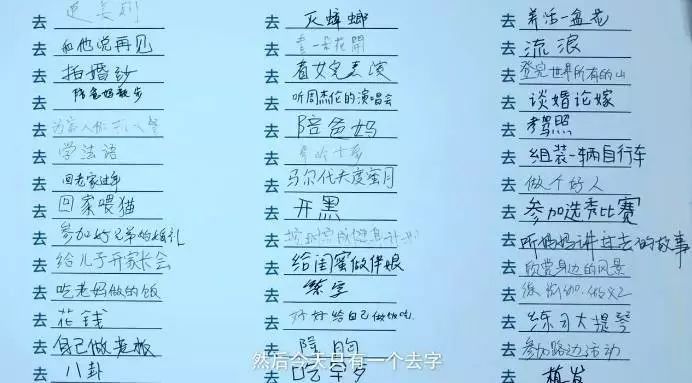 去 和他说再见
去 拍婚纱
去 陪爸妈散步
去 学法语
去 回老家过年
去 回家喂猫
去 参加好兄弟的婚礼
去 给儿子开家长会
去 吃老妈做的饭
去 花钱
去 自己做老板
去 八卦
去 灭蟑螂
去 看一朵花開
去 看女兒表演
去 听周杰伦的演唱会
去 陪爸妈
去
去 马尔代夫度蜜月
去 开黑
去
去 给闺蜜做伴娘
去 练字
去 好好给自己做饭吃
去
去 吃
去 养活一盆花
去 流浪
去 登完世界所有的山
去 谈婚论嫁
去 考驾照
去 组装一辆自行车
去 做个好人
去 参加选秀比赛
去 听妈妈讲过去的故事
去 欣赏身边的风景
去
去 练习大提琴
去 参加路边活动
去 植发
然后今天只有一个去字